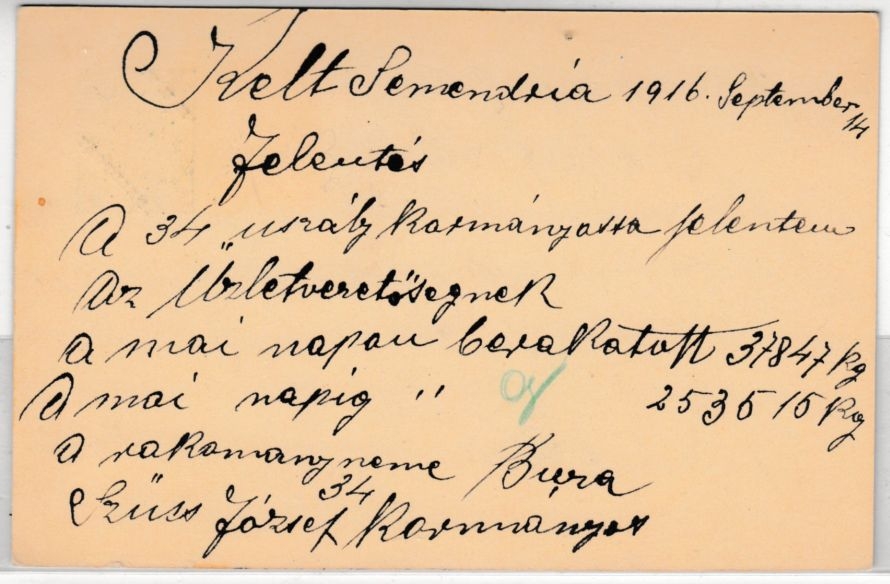 Kelt Semendria 1916. September 14
Jelentés
A 34 " uszály kormányossa jelentem
Az Üzletveretősegnek
a mai napon berakatott 37847 kg
A mai napig " 253515 kg
a rakomanyneme Buza
Szüss József 34 kormányos